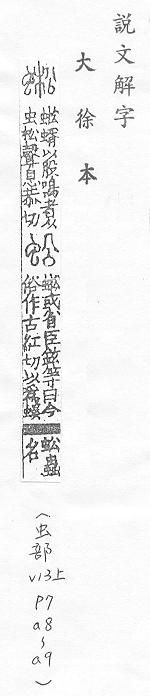 說文解字
大徐本
蜙蝑以股鳴者从
虫松聲息恭切
蚣
蜙或省臣鉉等曰今
俗作古紅切以爲蜈
蚣蟲
名
（虫部
V13上
P7
a8
~
a9
）